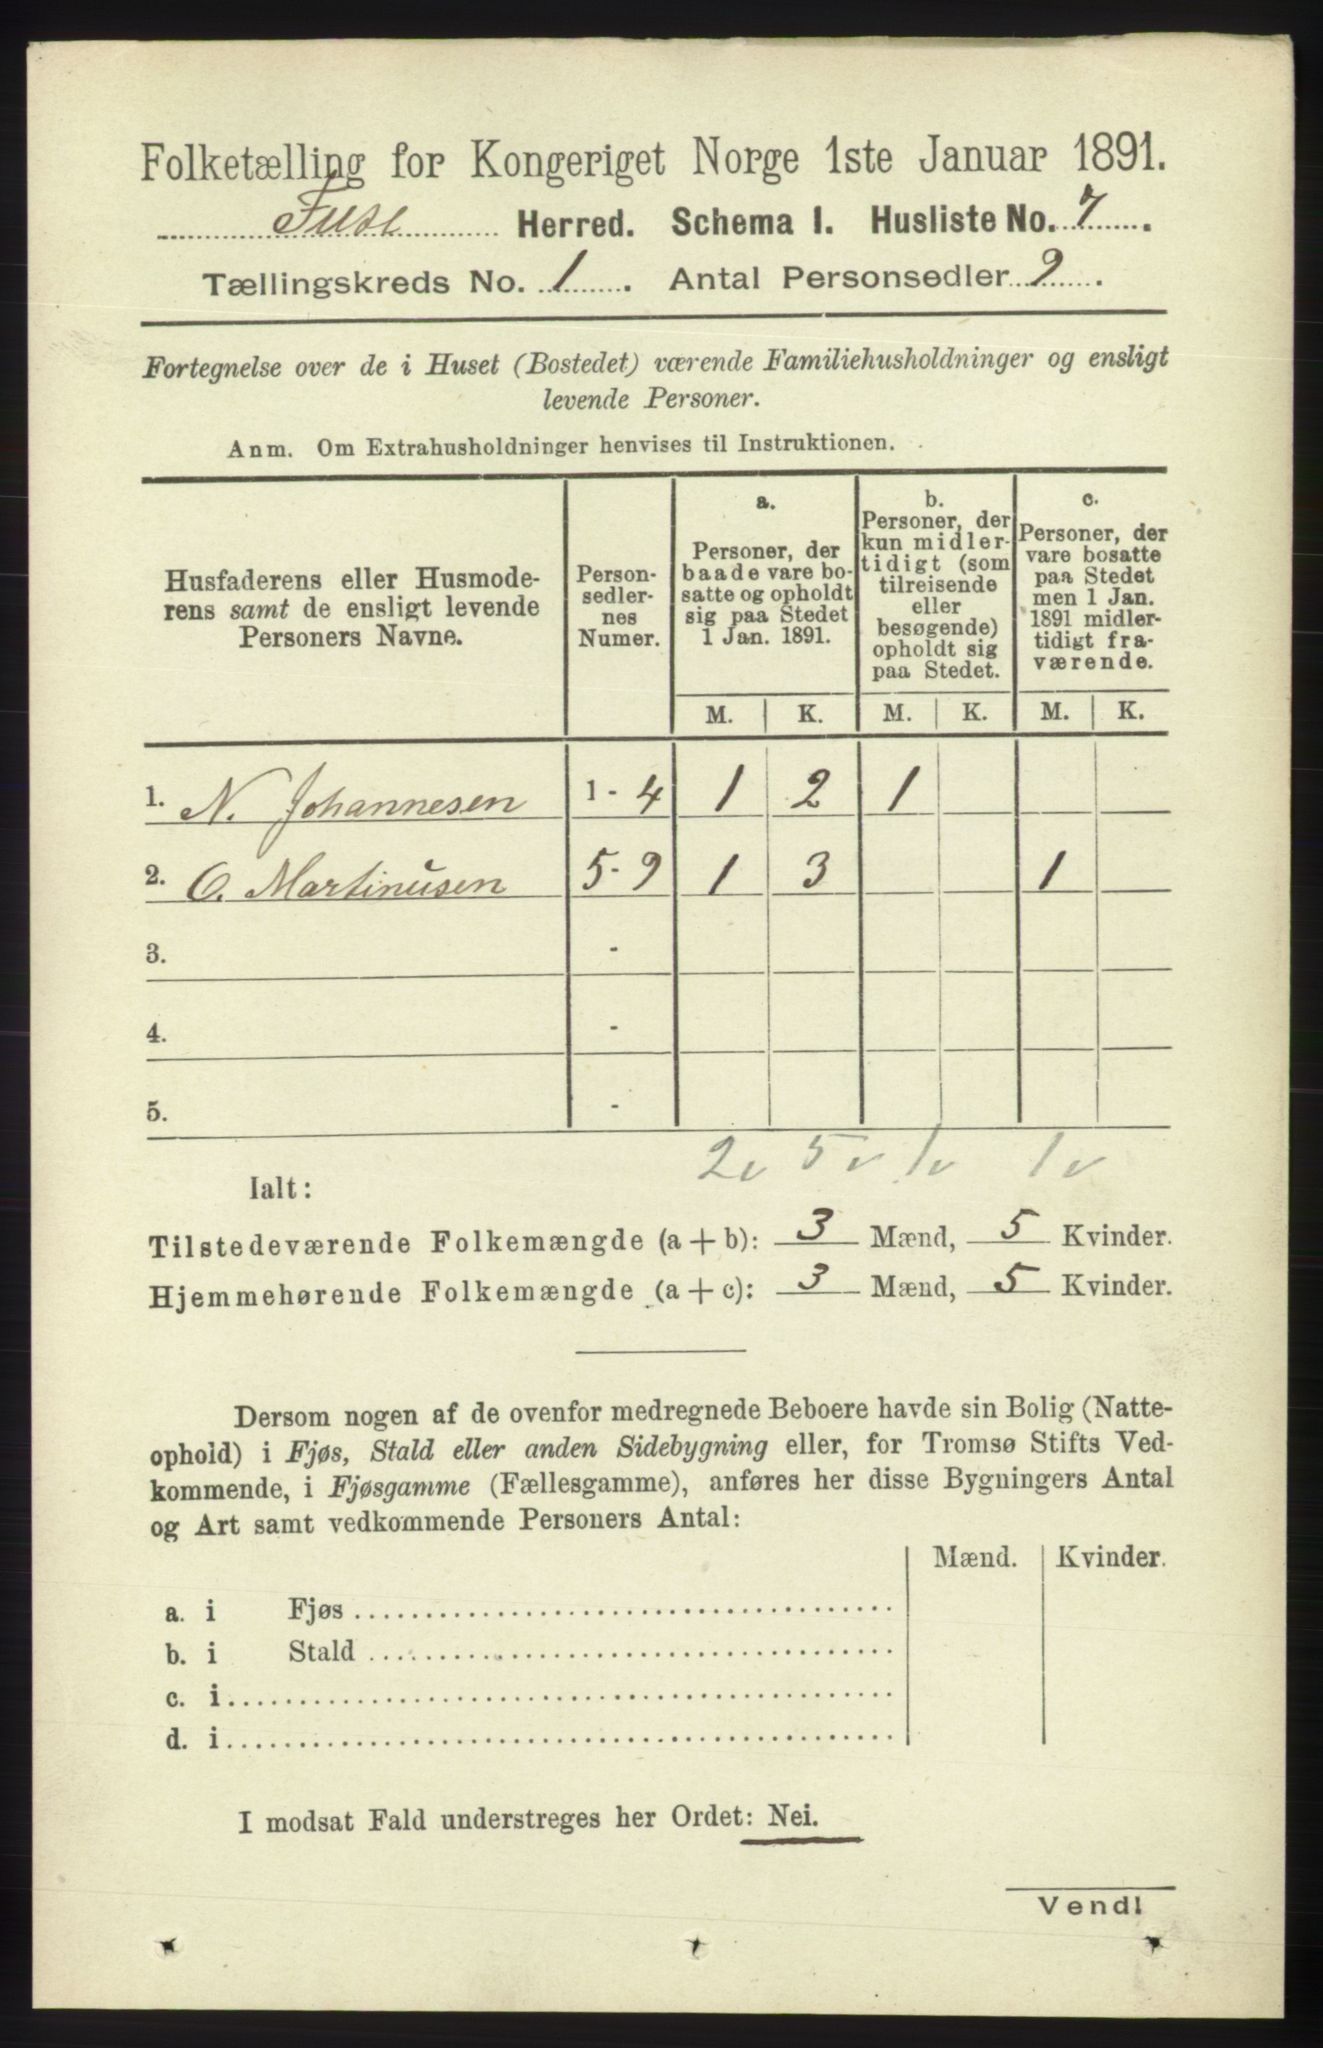 Folketælling for Kongeriget Norge 1ste Januar 1891.
Fuse Herred. Schema I. Husliste No. 7.
Tællingskreds No. 1. Antal Personsedler 9.
Fortegnelse over de i Huset (Bostedet) værende Familiehusholdninger og ensligt
levende Personer.
Anm. Om Extrahusholdninger henvises til Instruktionen.
Husfaderens eller Husmode-
rens samt de ensligt levende
Personers Navne.
Person-
sedler-
nes
Numer.
a.
Personer, der
baade vare bo-
satte og opholdt
sig paa Stedet
1 Jan. 1891.
b.
Personer, der
kun midler-
tidigt (som
tilreisende
eller
besøgende)
opholdt sig
paa Stedet.
c.
Personer, der
vare bosatte
paa Stedet
men 1 Jan.
1891 midler-
tidigt fra-
værende.
M. K. M. K. M. K.
1. N. Johannesen 1 - 4 1 2 1
2. O. Martinusen 5 - 9 1 3 1
3. -
4. -
5. -
2v 5v 1v 1v
Ialt:
Tilstedeværende Folkemængde (a + b): 3 Mænd, 5 Kvinder.
Hjemmehørende Folkemængde (a + c): 3 Mænd, 5 Kvinder.
Dersom nogen af de ovenfor medregnede Beboere havde sin Bolig (Natte-
ophold) i Fjøs, Stald eller anden Sidebygning eller, for Tromsø Stifts Ved-
kommende, i Fjøsgamme (Fællesgamme), anføres her disse Bygningers Antal
og Art samt vedkommende Personers Antal:
Mænd. Kvinder.
a. i Fjøs
b. i Stald
c. i
d. i
I modsat Fald understreges her Ordet: Nei.
Vend!